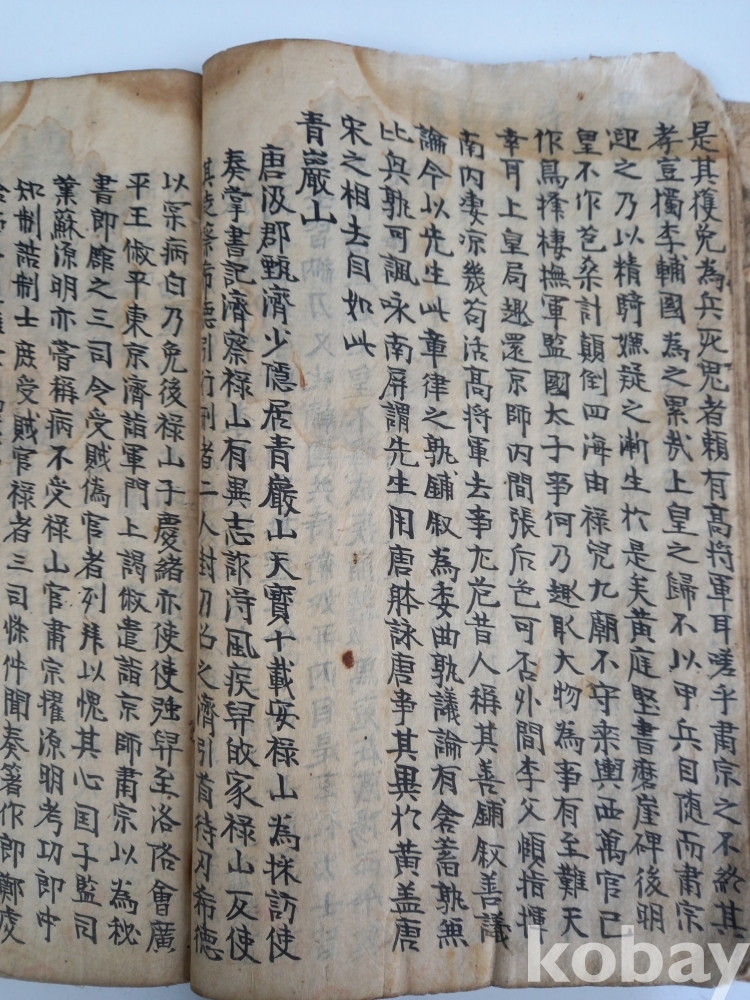 是其復免為兵死鬼者賴有高將軍耳嗟乎肅宗之不終其
孝豈獨李輔國為之累哉上皇之歸不以甲兵自随而肅宗
迎之乃以精騎嫌疑之漸生於是矣黄庭堅書磨崖碑後明
皇不作苞桑計顛倒四海由禄兒九廟不守乘輿西萬官已
作鳥擇棲撫軍監國太子事何乃趣取大物為事有至難天
幸耳上皇局趣還京師内間張后色可否外間李父頤指揮
南内凄凉幾苟活高將軍去事尤危昔人稱其善鋪叙善議
論今以先生此章律之孰鋪叙為委曲孰議論有含蓄孰無
比興孰可諷咏南屏謂先生用唐體詠唐事其異於黄盖唐
宋之相去自如此
青巖山
唐汲郡甄濟少隱居青巖山天寳十載安禄山為採訪使
奏掌書記濟察禄山有異志詐得風疾舁故家禄山反使
其使蔡希德引行刑者二人封刀召之濟引首待刃希德
以柒病白乃免後禄山子慶緒亦使使强舁至洛陽會廣
平王俶平東京濟詣軍門上謁俶遣詣京師肅宗以為秘
書郎館之三司令受賊偽官者列拜以愧其心国子監司
業蘇源明亦嘗稱病不受禄山官肅宗擢源明考功郎中
知制誥制士庶受賊官禄者三司條件聞奏著作郎鄭虔
kobay